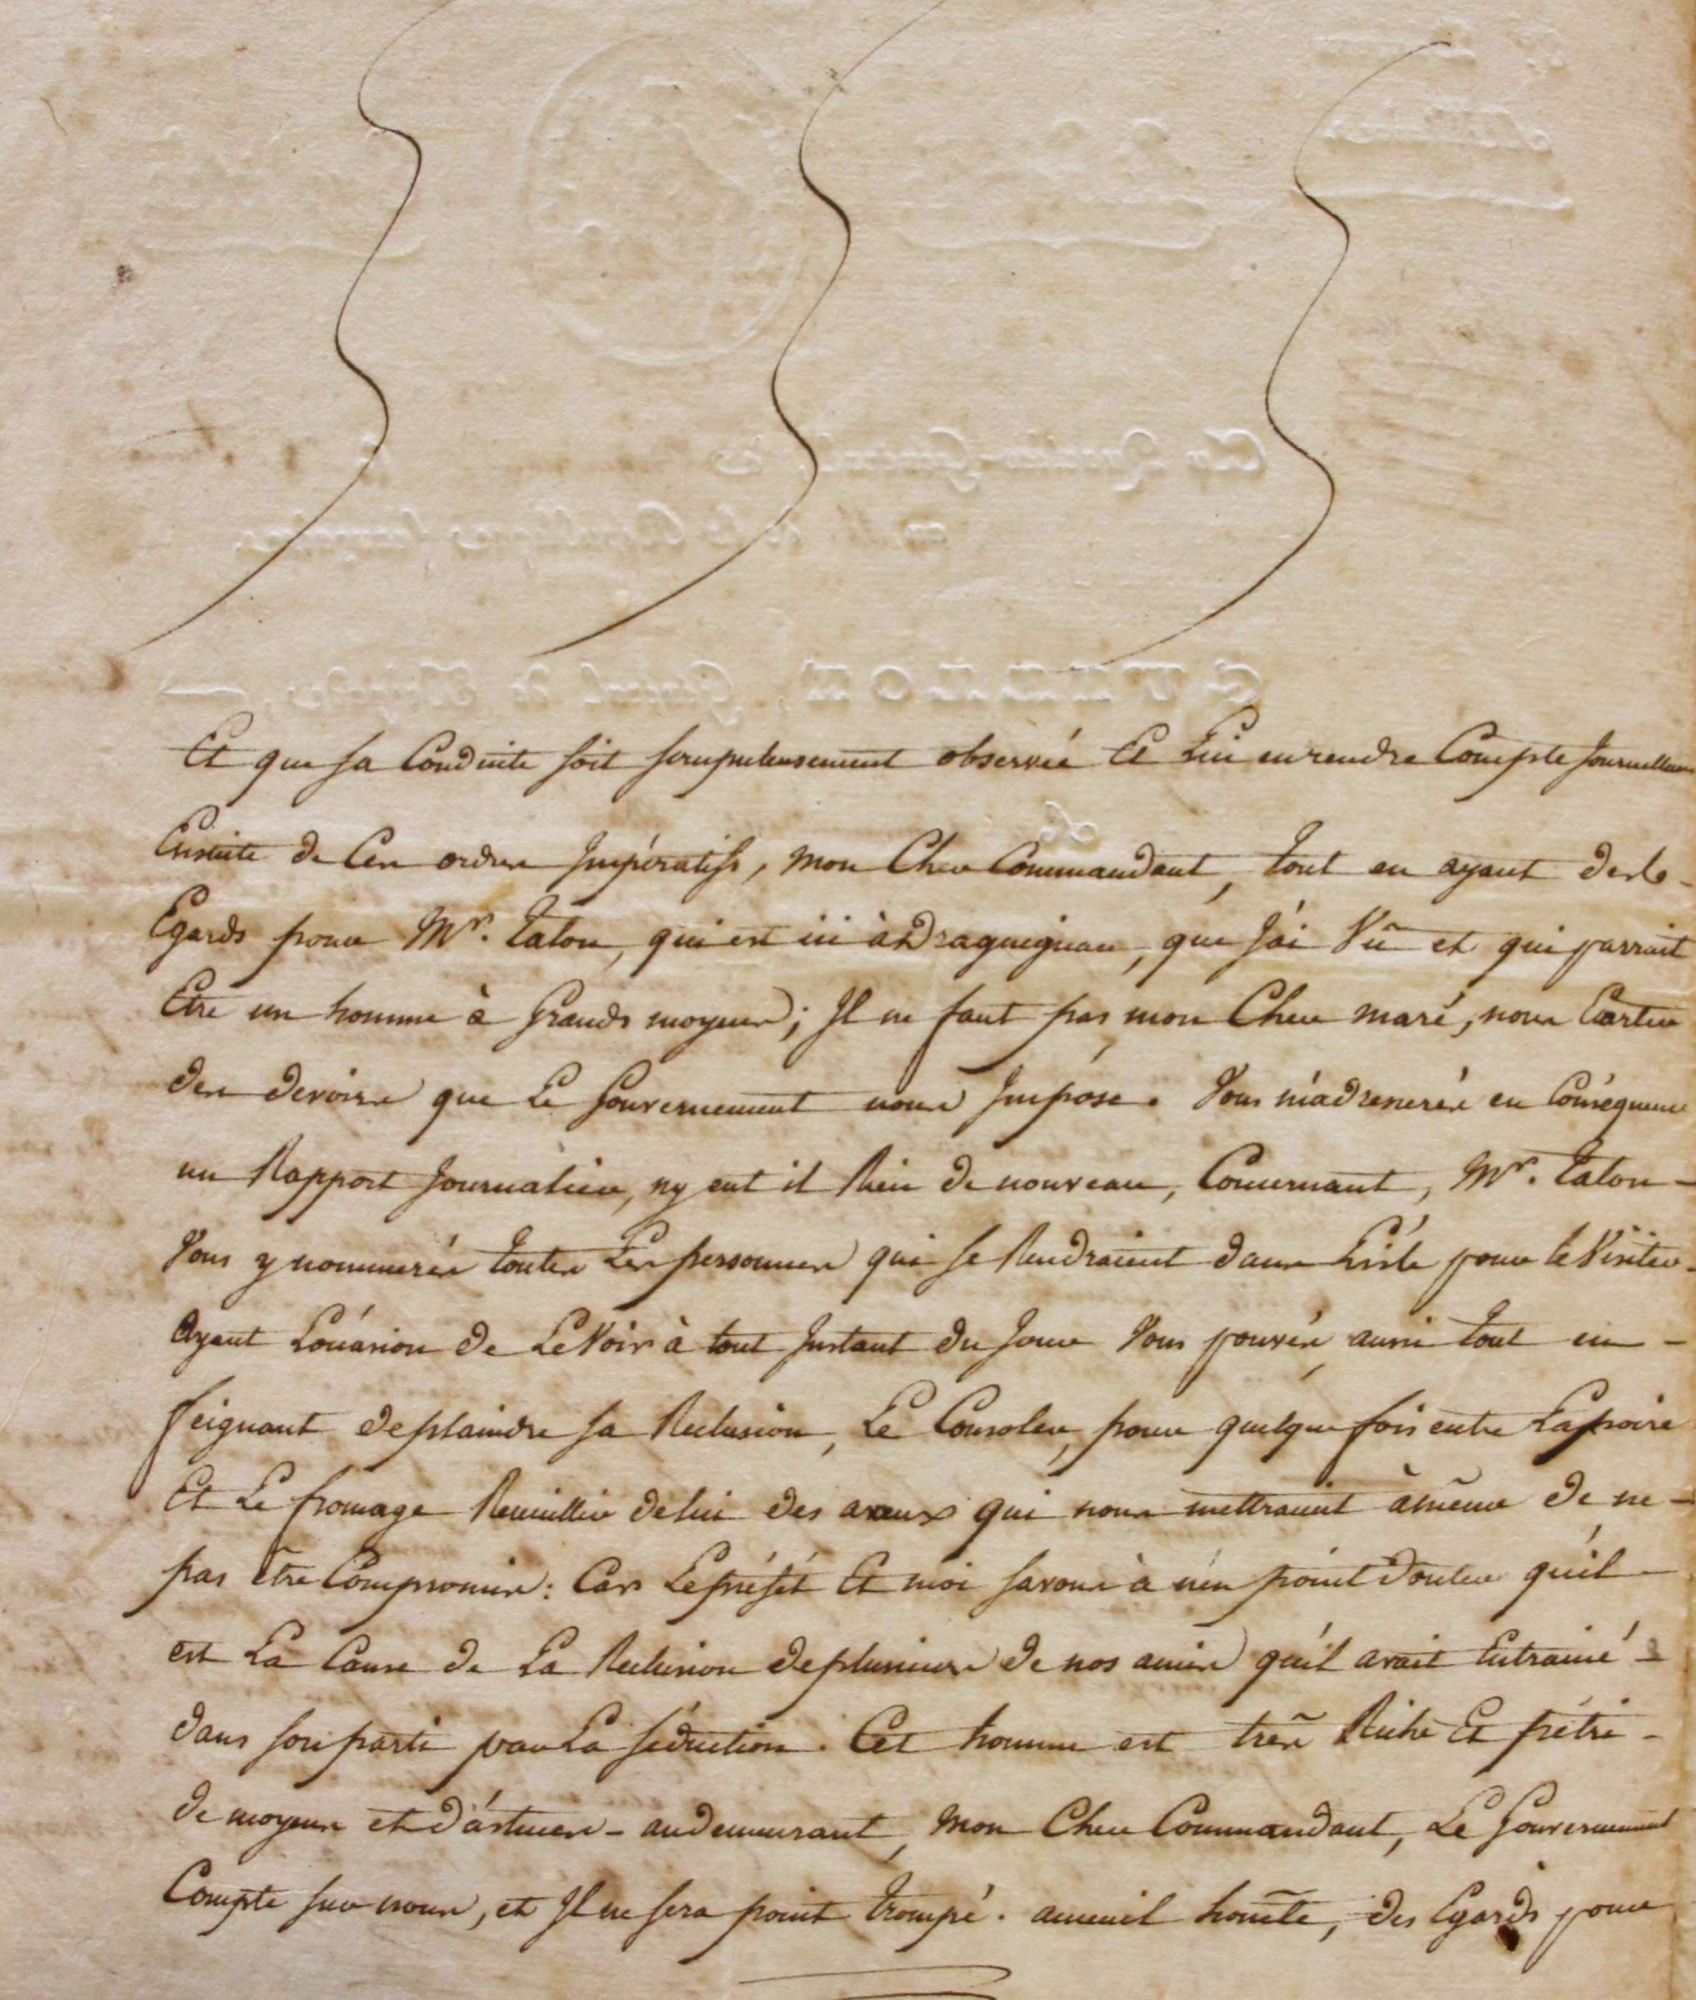 Et que sa Conduite soit scrupuleusement observée Et Lui en rendre Compte Journellem
Ensuite de Ces ordres Impératifs, mon Cher Commandant, tout en ayant des
Egards pour Mr. Talon, qui est ici à Draguignan, que J'ai Vû et qui parrait
Etre un homme à Grands moyens; Il ne faut pas mon Cher maré, nous Ecarter
des devoirs que Le Gouvernement nous Impose. Vous m'adresserés en Conséquence
un Rapport Journalier, n'y eut il Rien de nouveau, Concernant, Mr. Talon -
Vous y nommerés toutes Les personnes qui se Rendraient dans L'isle pour le Visiter.
Ayant L'ocasion de Le Voir à tout Instant du Jour Vous pouvés, aussi tout en -
feignant de plaindre sa Reclusion, Le Consoler, pour quelque fois entre La poire
Et Le fromage Receuillir de lui des aveux qui nous mettraient à même de ne -
pas être Compromis: Car Le préfét Et moi savons à n'en point Douter qu'il -
est La Cause de La Reclusion de plusieurs de nos amis qu'il avait Entrainé -
dans son parti par La séduction. Cet homme est très Riche Et pétri -
de moyens et d'astuces - au demeurant, mon Cher Commandant, Le Gouvernement
Compte sur nous, et Il ne sera point trompé. acueuil honête, des Egards pour